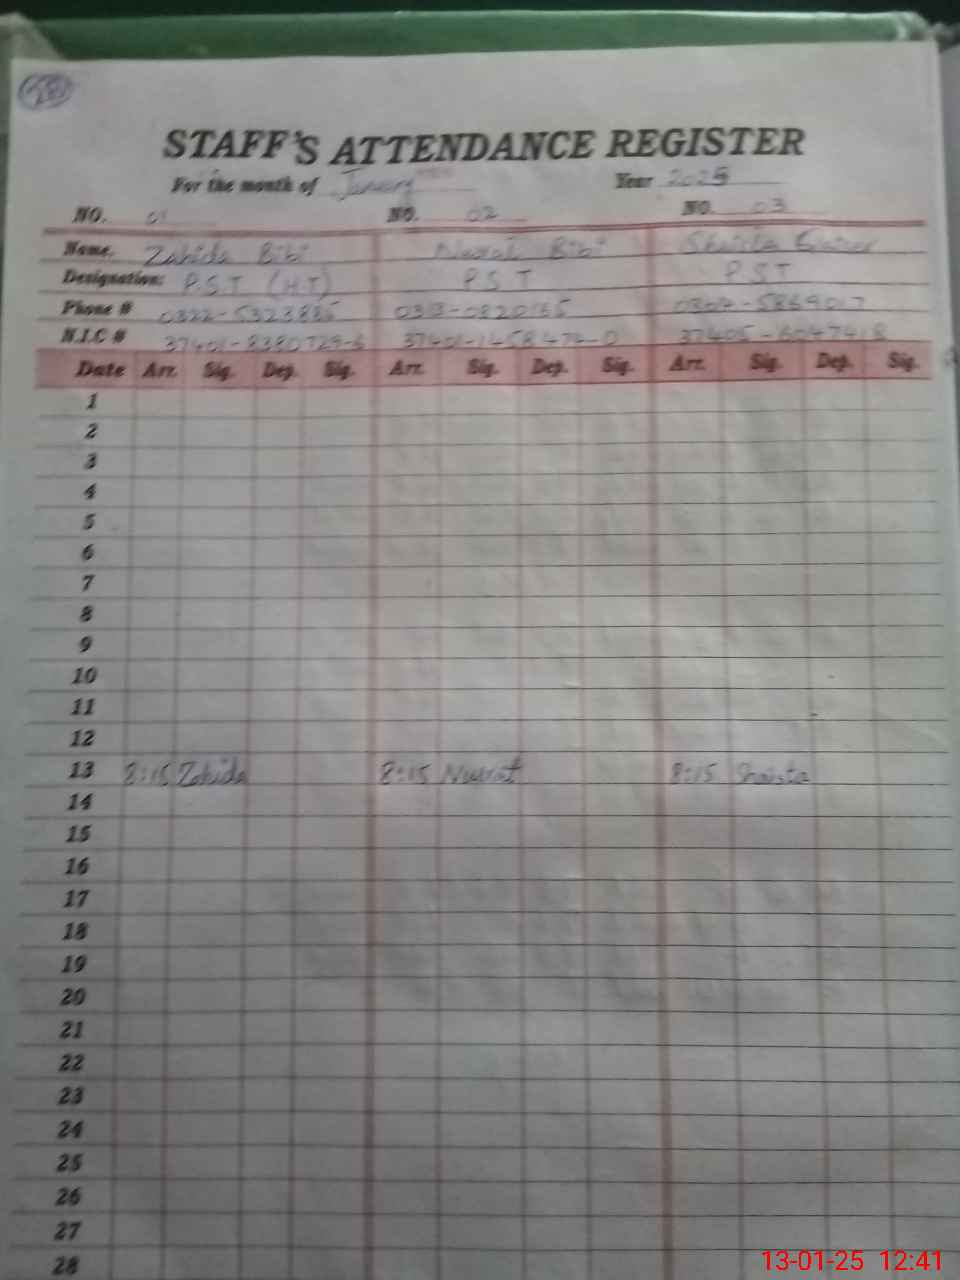 STAFF'S ATTENDANCE REGISTER
For the month of January Year 2025
NO. 01 NO. 02 NO. 03
Name. Zahida Bibi Bibi
Designation: P.S.T (H.T) P S T P S T
Phone #
N.I.C #
Date Arr. Sig. Dep. Sig. Arr. Sig. Dep. Sig. Arr. Sig. Dep. Sig.
1
2
3
4
5
6
7
8
9
10
11
12
13 8:15 Zahida 8:15 Nusrat 8:15 Shaista
14
15
16
17
18
19
20
21
22
23
24
25
26
27
28
13-01-25 12:41